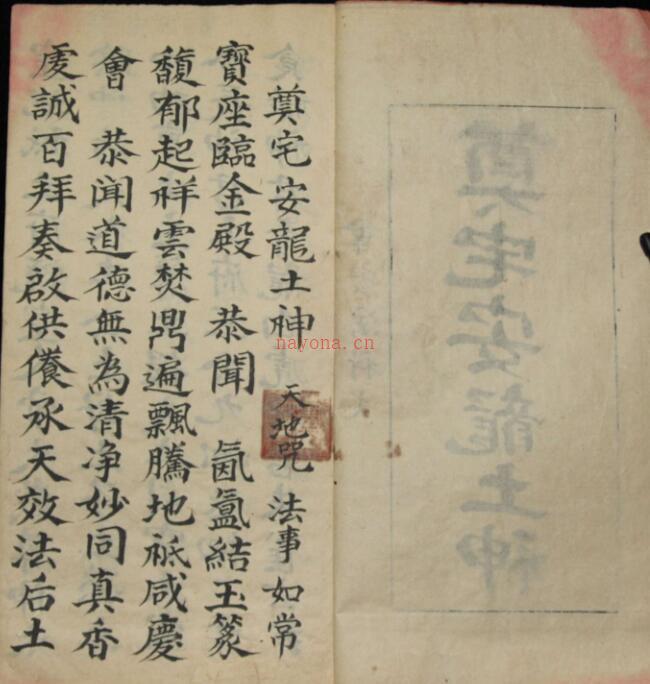 奠宅安龍土神
奠宅安龍土神 天地咒 法事如常
寶座臨金殿 恭聞 氤氳結玉篆
馥郁起祥雲焚鼎遍飄騰地祇咸慶
會 恭聞道德無為清净妙同真香
虔誠百拜奏啟供養承天效法后土
nayona.cn